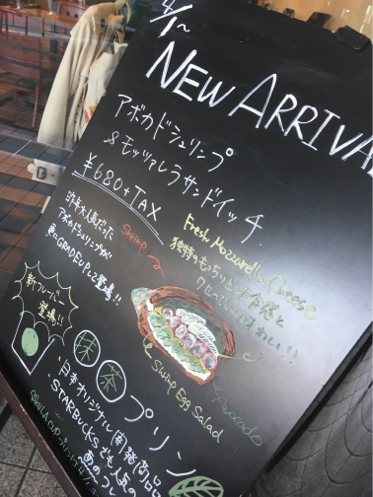 4/1~
NEW ARRIVA
アボカドシュリンプ
&モッツァレラサンドイッチ
¥680+TAX
昨年大人気だった
アボカドシュリンプが
更にGRADEUPして登場!!
Shrimp
Fresh Mozzarella Cheese
独特のもっちりとした食感と
クセ
!!
Avocado
Egg Salad
新フレーバー
登場!!
抹茶プリン
・日本オリジナル開発商品
・STARBUCKSでも人気の